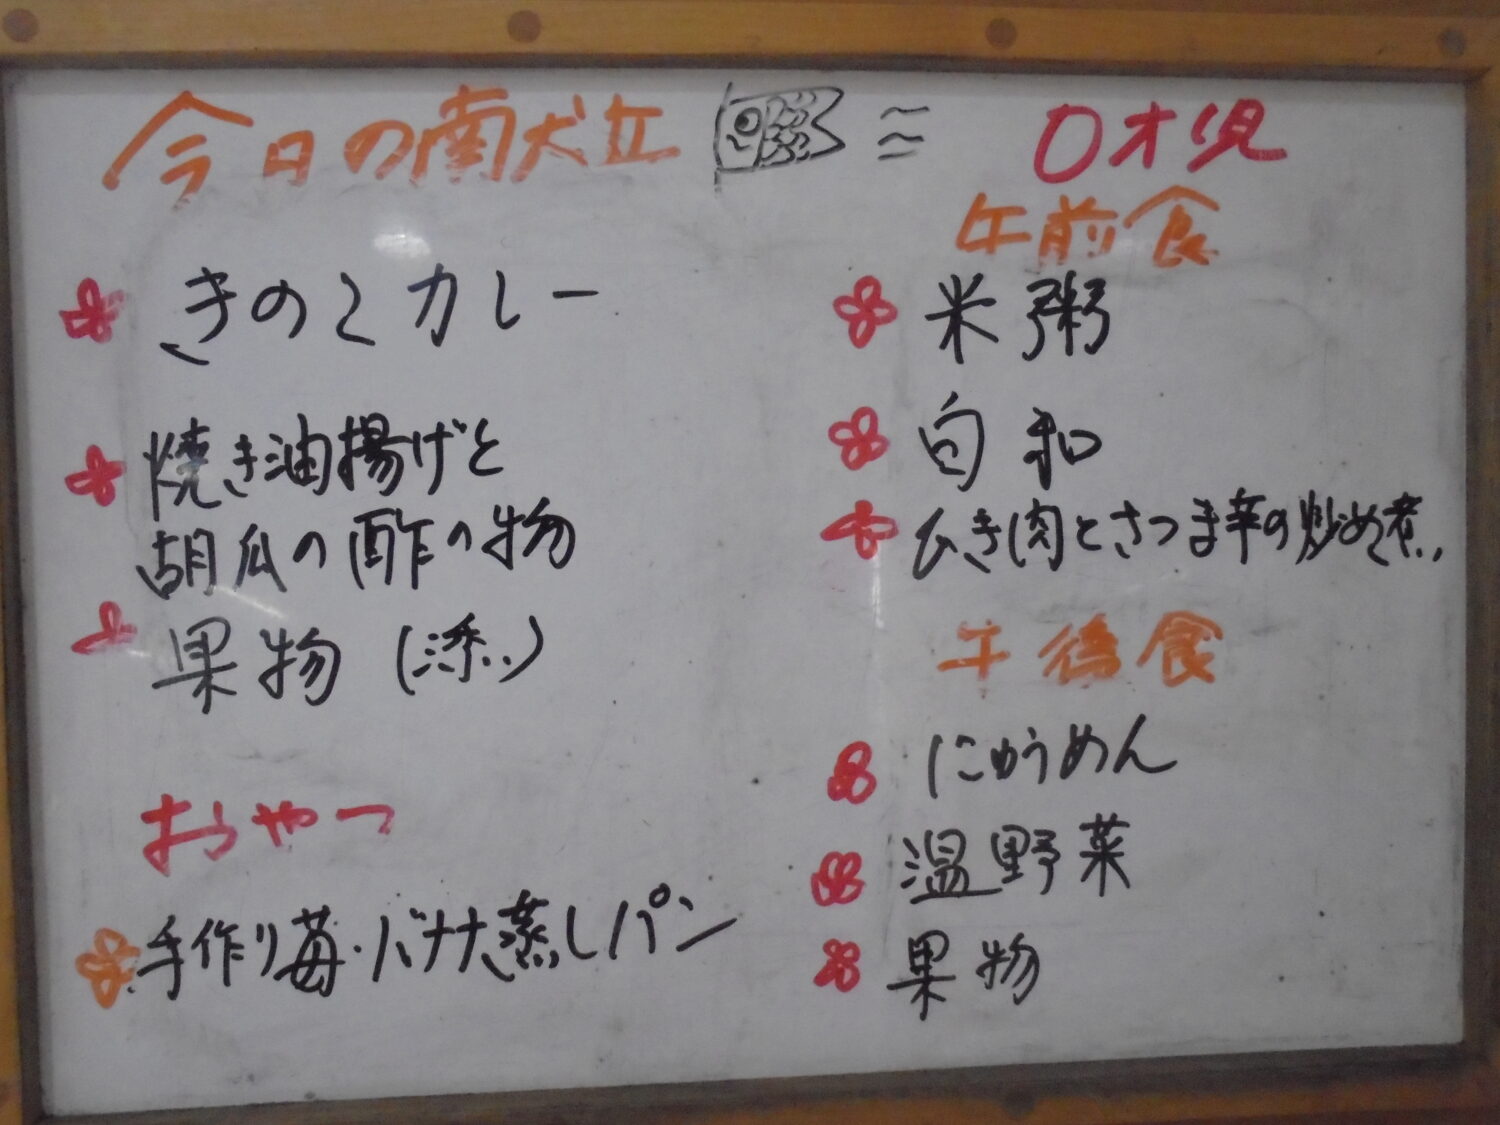 今日の献立
きのこカレー
焼き油揚げと
胡瓜の酢の物
果物(添..)
おやつ
手作り苺・バナナ蒸しパン
0才児
午前食
米粥
白和
ひき肉とさつま芋の炒め煮
午後食
にゅうめん
温野菜
果物